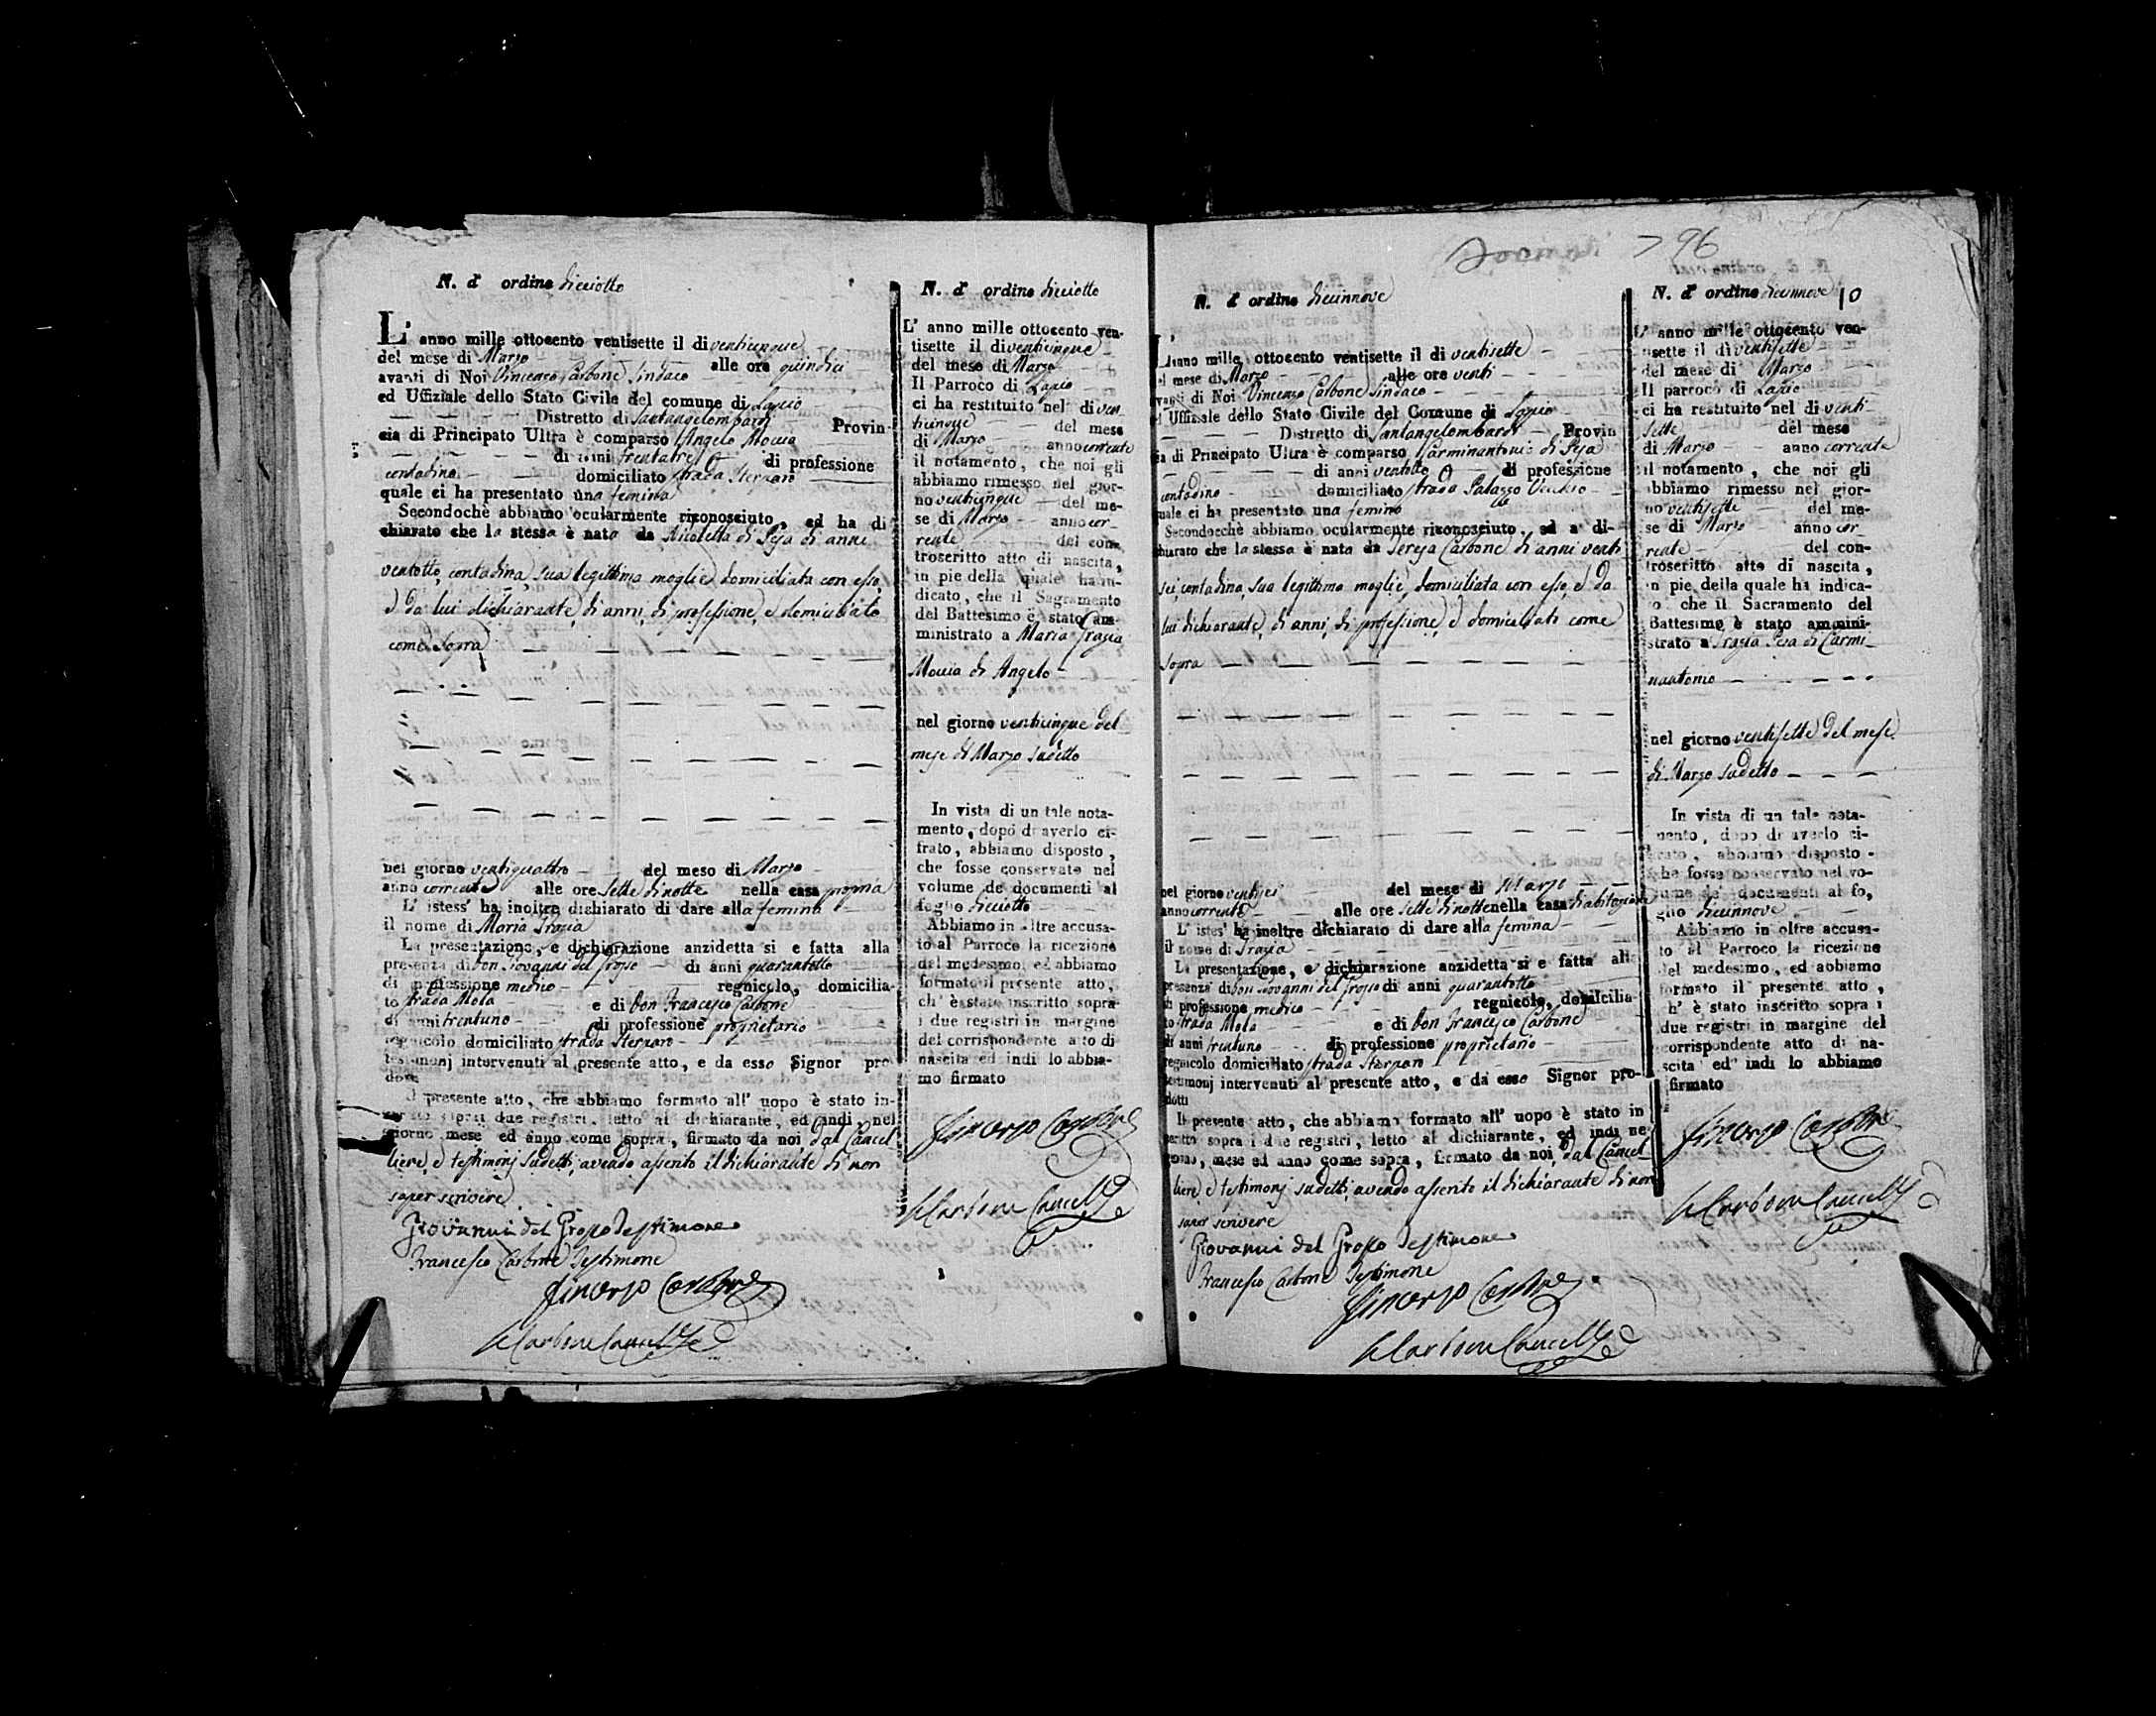 N. d' ordine diciotto
L' anno mille ottocento ventisette il di venticinque
del mese di Marzo alle ore quindici
avanti di Noi Vincenzo Carbone Sindaco
ed Uffiziale dello Stato Civile del comune di Lapio
Distretto di Santangelombardi Provin-
cia di Principato Ultra è comparso Angelo Moccia
di anni trentatre di professione
contadino domiciliato strada Sterparo
quale ci ha presentato una femina
Secondochè abbiamo ocularmente riconosciuto, ed ha di
chiarato che la stessa è nata da Nicoletta di Pesa di anni
ventotto, contadina, sua legittima moglie domiciliata con esso,
e da lui dichiarante, di anni, di professione, e domiciliato
come sopra
nel giorno ventiquattro del mese di Marzo
anno corrente alle ore sette di notte nella casa propria
L' istess' ha inoltre dichiarato di dare alla femina
il nome di Maria Grazia
La presentazione, e dichiarazione anzidetta si e fatta alla
presenza di Don Giovanni del Grosso di anni quarantotto
di professione medico regnicolo, domicilia-
to strada Mola e di Don Francesco Carbone
di anni trentuno di professione proprietario
regnicolo domiciliato strada Sterparo
testimonj intervenuti al presente atto, e da esso Signor pro
dotti
Il presente atto, che abbiamo formato all' uopo è stato in-
scritto sopra i due registri, letto al dichiarante, ed indi nel
giorno mese ed anno come sopra, firmato da noi, dal Cancel-
liere, e testimonj sudetti, avendo asserito il dichiarante di non
saper scrivere
Giovanni del Grosso Testimone
Francesco Carbone Testimone
Vincenzo Carbone
Carbone Canc.
N. d' ordine diciotto
L' anno mille ottocento ven-
tisette il di venticinque
del mese di Marzo
Il Parroco di Lapio
ci ha restituito nel di ven
ticinque del mese
di Marzo anno corrente
il notamento, che noi gli
abbiamo rimesso nel gior-
no venticinque del me-
se di Marzo anno cor-
rente del con
troscritto atto di nascita,
in pie della quale ha in-
dicato, che il Sagramento
del Battesimo è stato am-
ministrato a Maria Grazia
Moccia di Angelo
nel giorno venticinque del
mese di Marzo sudetto
In vista di un tale nota-
mento, dopo di averlo ci-
frato, abbiamo disposto,
che fosse conservato nel
volume de documenti al
foglio diciotto
Abbiamo in oltre accusa-
to al Parroco la ricezione
del medesimo, ed abbiamo
formato il presente atto,
ch' è stato inscritto sopra
i due registri in margine
del corrispondente atto di
nascita ed indi lo abbia-
mo firmato
Vincenzo Carbone
Carbone Canc.
796
N. d' ordine diciannove
L' anno mille ottocento ventisette il di ventisette
del mese di Marzo alle ore venti
avanti di Noi Vincenzo Carbone Sindaco
ed Uffiziale dello Stato Civile del Comune di Lapio
Distretto di Santangelombardi Provin
cia di Principato Ultra è comparso Carminantonio di Pesa
di anni ventotto di professione
contadino domiciliato strada Palazzo Vecchio
quale ci ha presentato una femina
Secondocchè abbiamo ocularmente riconosciuto, ed a di-
chiarato che la stessa è nata da Teresa Carbone di anni venti
sei, contadina, sua legittima moglie, domiciliata con esso, e da
lui dichiarante, di anni, di professione, e domiciliato come
sopra
nel giorno ventisei del mese di Marzo
anno corrente alle ore sette di notte nella casa di abitazione
L' istes' ha inoltre dichiarato di dare alla femina
il nome di Grazia
La presentazione, e dichiarazione anzidetta si e fatta alla
presenza di Don Giovanni del Grosso di anni quarantotto
di professione medico regnicolo, domicilia-
to strada Mola e di Don Francesco Carbone
di anni trentuno di professione proprietario
regnicolo domiciliato strada Sterparo
testimonj intervenuti al presente atto, e da esso Signor pro-
dotti
Il presente atto, che abbiamo formato all' uopo è stato in
scritto sopra i due registri, letto al dichiarante, ed indi ne
giorno, mese ed anno come sopra, firmato da noi, dal Cancel-
liere, e testimonj sudetti, avendo asserito il dichiarante di non
saper scrivere
Giovanni del Grosso Testimone
Francesco Carbone Testimone
Vincenzo Carbone
Carbone Canc.
N. d' ordine diciannove 10
L' anno mille ottocento ven-
tisette il di ventisette
del mese di Marzo
Il parroco di Lapio
ci ha restituito nel di venti-
sette del mese
di Marzo anno corrente
il notamento, che noi gli
abbiamo rimesso nel gior-
no ventisette del me-
se di Marzo anno cor
rente del con-
troscritto atto di nascita,
in pie della quale ha indica-
to che il Sacramento del
Battesimo è stato ammini-
strato a Grazia Pesa di Carmi-
nantonio
nel giorno ventisette del mese
di Marzo sudetto
In vista di un tale nota-
mento, dopo di averlo ci-
frato, abbiamo disposto
che fosse conservato nel vo-
lume de' documenti al fo,
glio diciannove
Abbiamo in oltre accusa-
to al Parroco la ricezione
del medesimo, ed abbiamo
formato il presente atto,
ch' è stato inscritto sopra i
due registri in margine del
corrispondente atto di na-
scita ed indi lo abbiamo
firmato
Vincenzo Carbone
Carbone Canc.